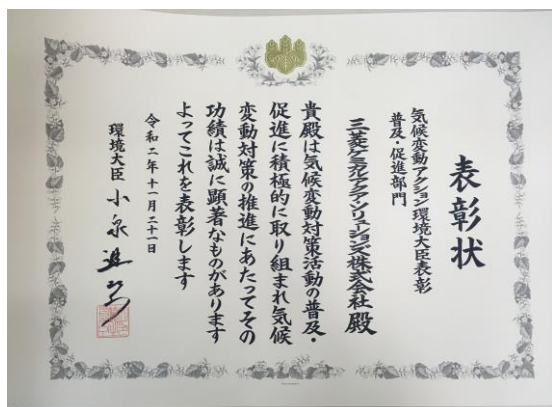 表彰状
気候変動アクション環境大臣表彰
普及・促進部門
三菱ケミカルアクア・ソリューションズ株式会社 殿
貴殿は気候変動対策活動の普及・
促進に積極的に取り組まれ気候
変動対策の推進にあたってその
功績は誠に顕著なものがあります
よってこれを表彰します
令和二年十一月二十一日
環境大臣 小泉進次郎